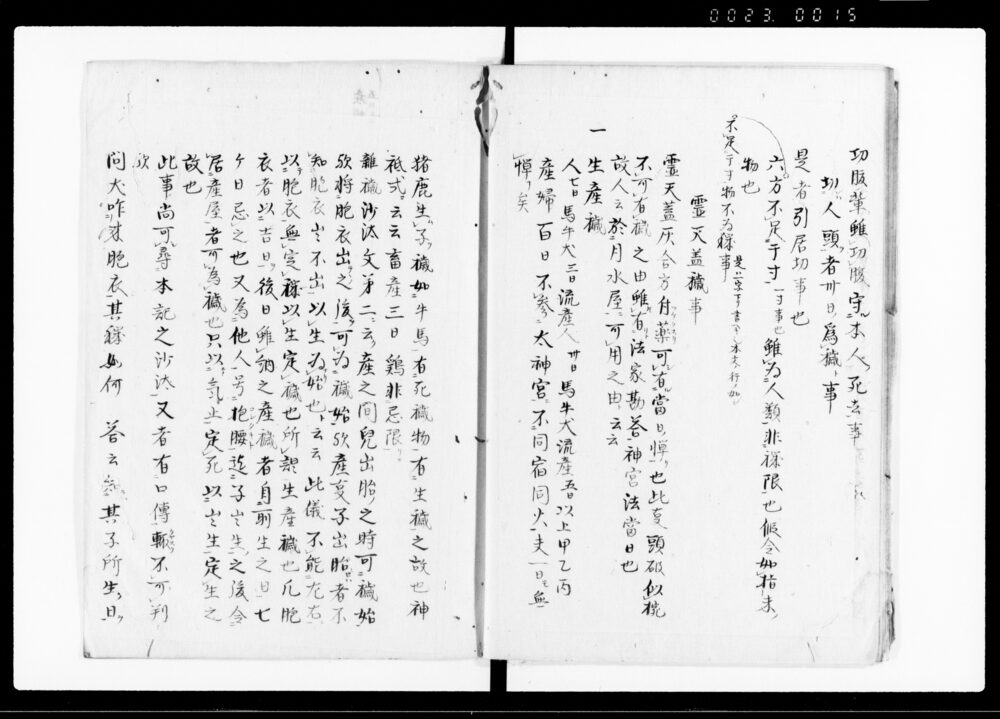 0023.0015
切腹輩雖切腹守本人死去事
切人頭者卅日為穢事
是者引居切事也
六方不足于寸一寸事也雖為人類非穢限也假令如指
物也
不足于寸物不為穢事
霊天蓋穢事
霊天蓋灰合方付薬可有當日憚也此更頭破似
不可有穢之由雖有法家勘答神宮法當日也
故人云於月水屋可用之由云云
一
生産穢
人七日馬牛犬三日流産人卅日馬牛犬流産五日以上甲乙丙
産婦百日不参太神宮不同宿同火夫一日無
憚矣
猪鹿生子穢如牛馬有死穢物有生穢之故也神
祇式云云畜産三日鶏非忌限
雑穢沙汰文第二云産之間児出胎之時可穢始
欤将胞衣出之後可為穢始欤産更子出胎者不
知胞衣出不出以生為始也云云此儀不能左右
以胞衣無定穢以生定穢也所詮生産穢也凡胞
衣者以吉日後日雖納之産穢者自前生之日七
ケ日忌之也又為他人号抱腰迄子出生之後令
居産屋者可為穢也只以気止定死以出生定生之
故也
此事尚可尋本記之沙汰又者有口傳輙不可判
欤
問犬咋来胞衣其穢如何 答云 其子所生日